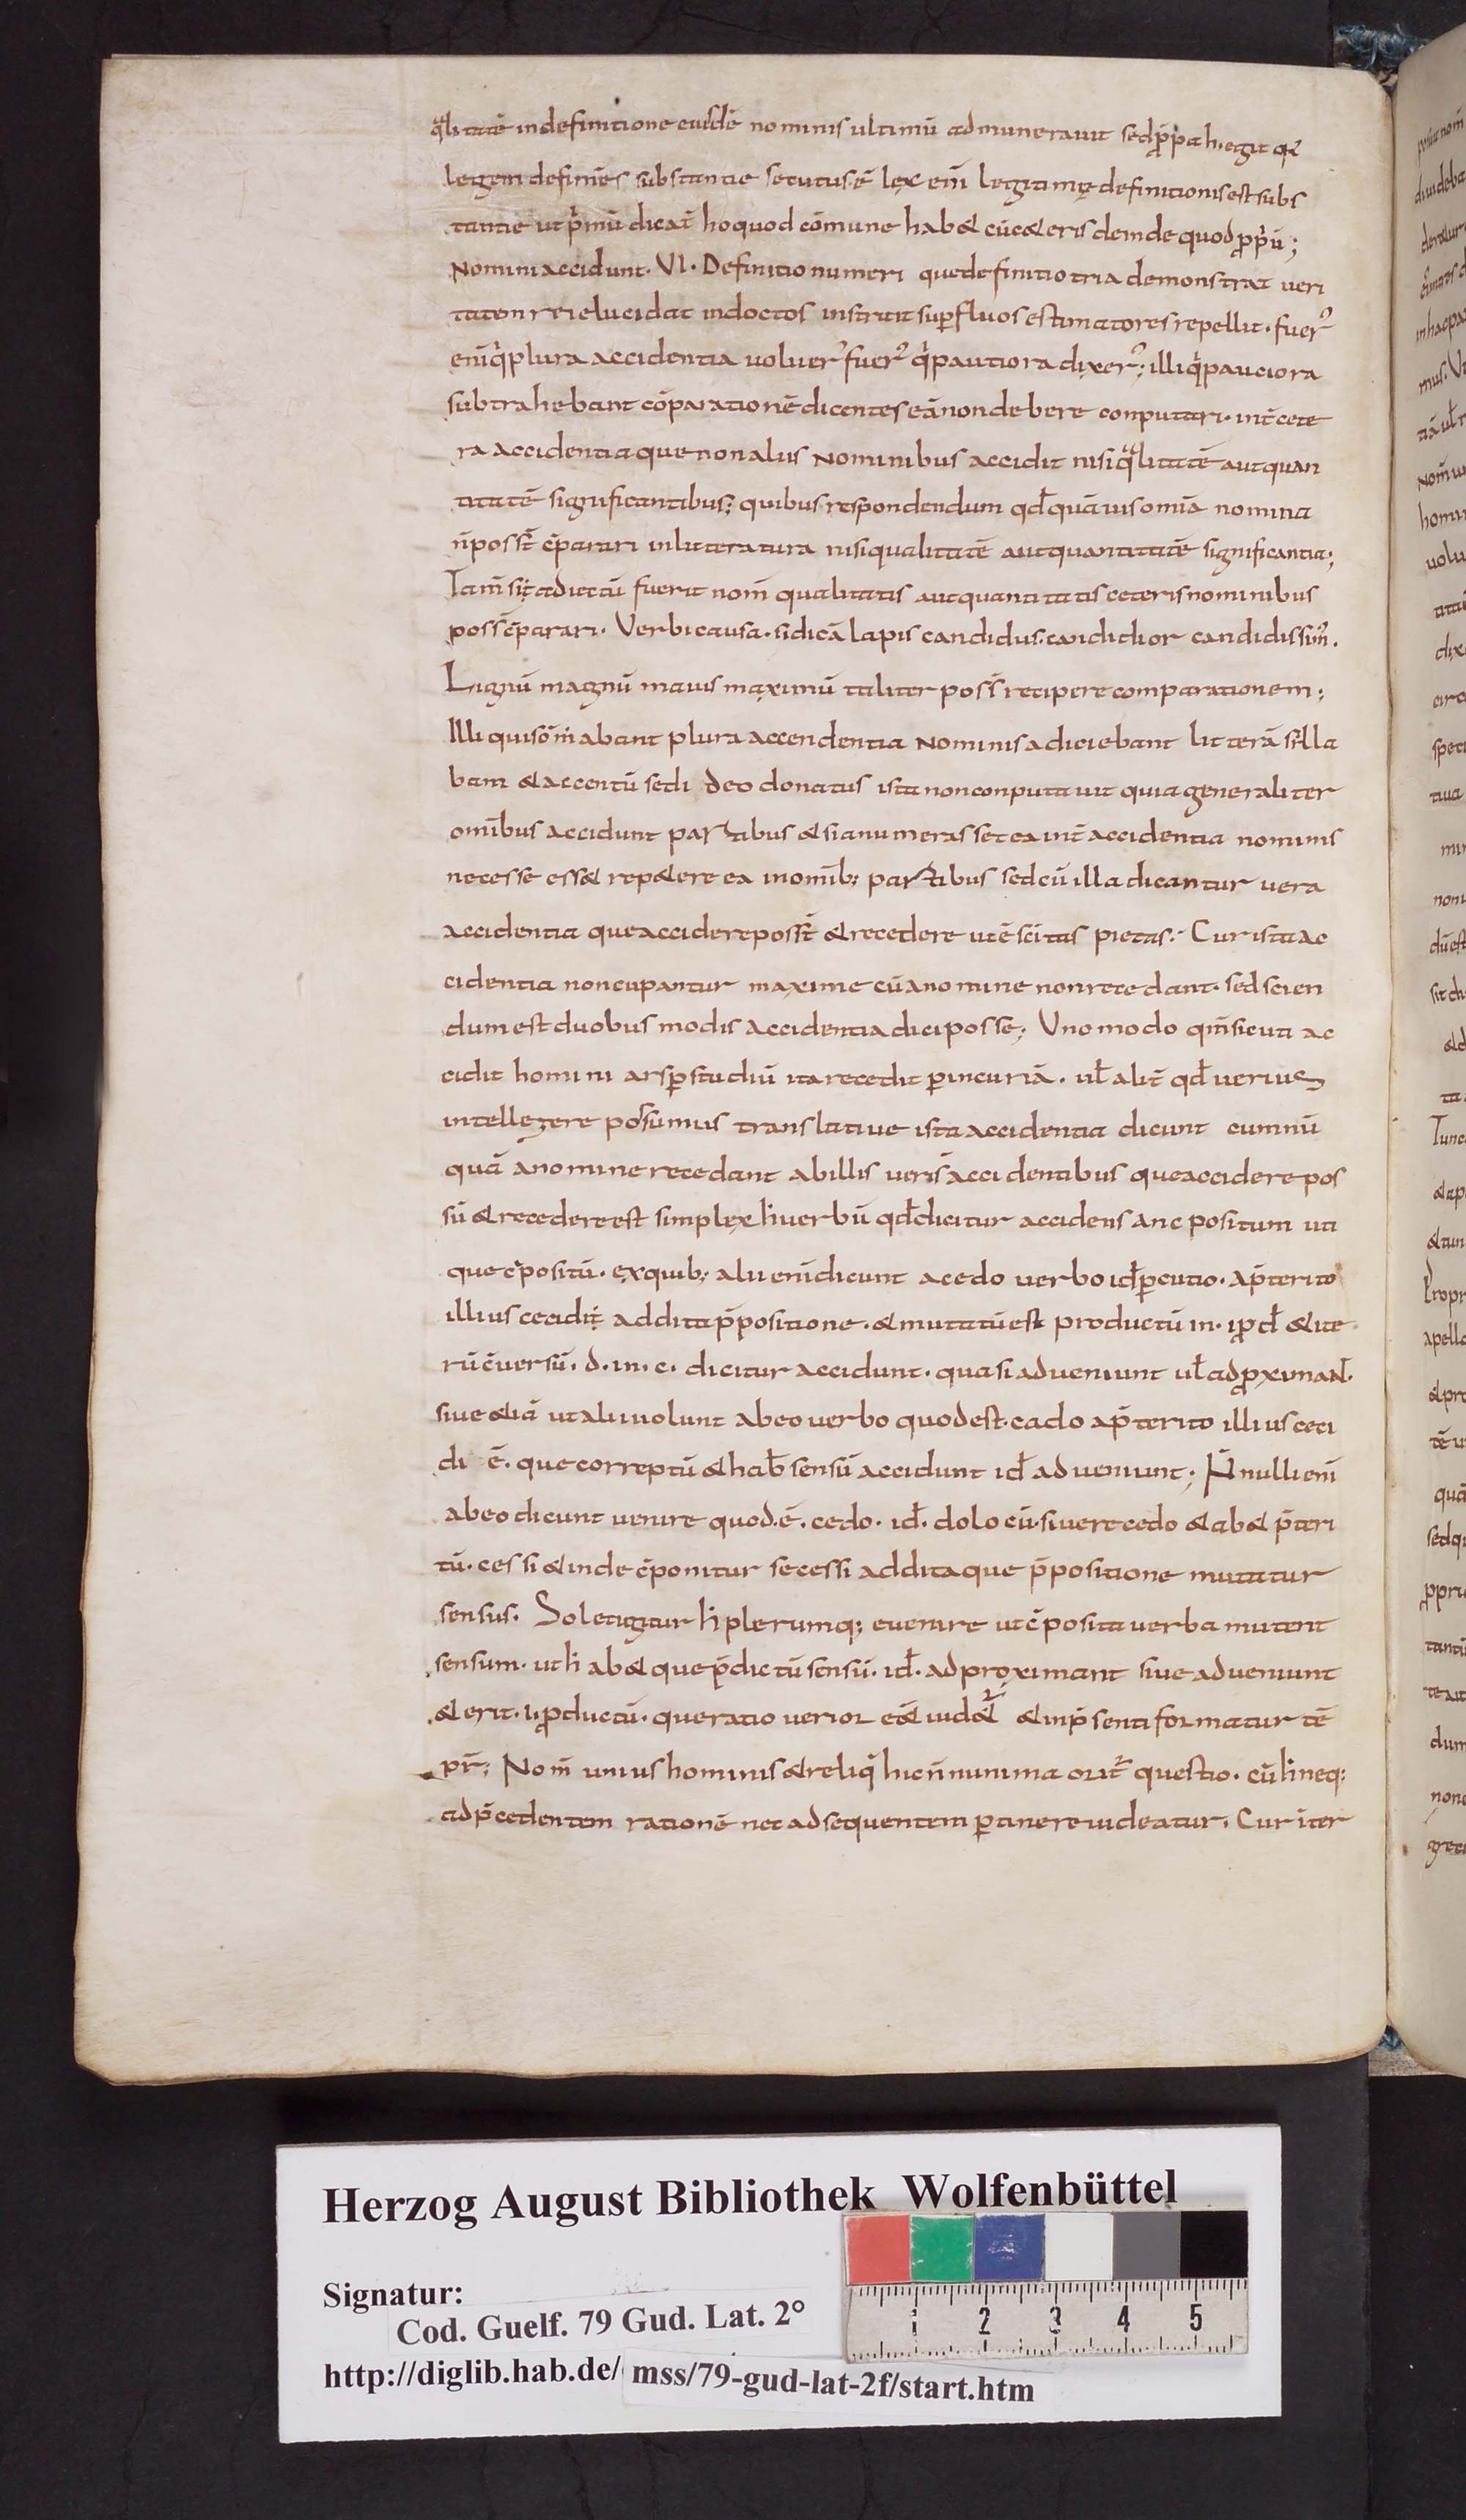 qlitatē in definitione eiusdē nominis ultimū admunerauit sed ꝓpt a h. egit qa
legem definiens substantie secutus ē lex enī legitimę definitionis est subs
tantie ut p̄mū dicat̄ ho quod cōmune hab& cū c&eris deinde quod ꝓp̄ū;
Nomini accidunt. VI. Definitio numeri que definitio tria demonstrat ueri
tatem rei elucidat indoctos instruit sup̄fluos estimatores repellit. fuer̄
enī q̄ plura accidentia uoluer̄ fuer̄ q̄ pautiora dixer̄; illi q̄ pauciora
subtrahebant cōparationē dicentes eā non debere conputari. int̄ cete
ra accidentia que non aliis Nominibus accidit nisi qlitatē aut quan
titatē significantibus; quibus respondendum qd̄ quāuis omīa nomina
n̄ posst̄ c̄parari in literatura nisi qualitatē aut quantitatē significantia;
Tam̄ si adiectū fuerit nom̄ qualitatis aut quantitatis ceteris nominibus
poss c̄parari. Verbi causa. si dicā lapis candidus. candidior candidissim̄.
Lignū magnū maius maximū taliter poss̄ recipere comparationem;
Illi qui sōm̄abant plura accendentia Nominis adiciebant litterā silla
bam & accentū sed ideo donatus ista non conputauit quia generaliter
omībus accidunt partibus & si anumerasset ea int̄ accidentia nominis
necesse ess& rep&ere ea in omīb; partibus sed cū illa dicantur uera
accidentia que accidere posst̄ & recedere ut ē scītas pietas. Cur ista ac
cidentia noncupantur maxime cū a nomine non recedant. sed scien
dum est duobus modis accidentia dici posse; Uno modo qm̄ sicuti ac
cidit homini ars p̄ studiū ita recedit p̄ incuriā. ul̄ alit̄ qd̄ uerius
intellegere possumus translatiue ista accidentia dicunt cum nū
quā a nomine recedant ab illis ueris accidentibus que accidere pos
sū & recedere est simplex h uerbū qd̄ dicitur accidens an c positum uti
que c̄positū. ex quib; alii enī dicunt a cedo uerbo id̄ p̄cutio. a p̄terito
illius cecidit addita p̄positione. & mutatū est productū in. i ꝓ d̄ & ite
rū c̄uersū. d. in. c. dicitur accidunt. quasi adueniunt ul̄ adꝓximant̄.
siue &iā ut alii uolunt ab eo uerbo quod est. cado a p̄terito illius ceci
di ē. que correptū & hab̄ sensū accidunt id̄ adueniunt; H̄ nulli enī
ab eo dicunt uenire quod. ē. cedo. id̄. do locū. siue recedo & ab& p̄teri
tū. cessi & inde c̄ponitur secessi additaque p̄positione mutatur
sensus. Solet igitur h plerumq; euenire ut c̄posita uerba mutent
sensum. ut h ab& que p̄dictū sensū. id̄. adproximant siue adueniunt
& erit. i. ꝓductū. que ratio uerior e& uid& & in p̄senti formatur tē
pr̄; Nom̄ unius hominis & reliq̄ hic n̄ minima orit̄ questio. cū h neq;
ad p̄cedentem rationē nec ad sequentem p̄tinere uideatur. Cur iter
Herzog August Bibliothek Wolfenbüttel
Signatur:
Cod. Guelf. 79 Gud. Lat. 2°
http://diglib.hab.de/ mss/79-gud-lat-2f/start.htm
1 2 3 4 5